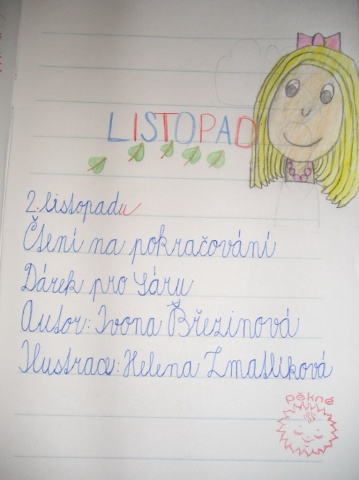 LISTOPAD
2. listopadu
Čtení na pokračování
Dárek pro Sáru
Autor: Ivona Březinová
Ilustrace: Helena Zmatlíková
pěkné